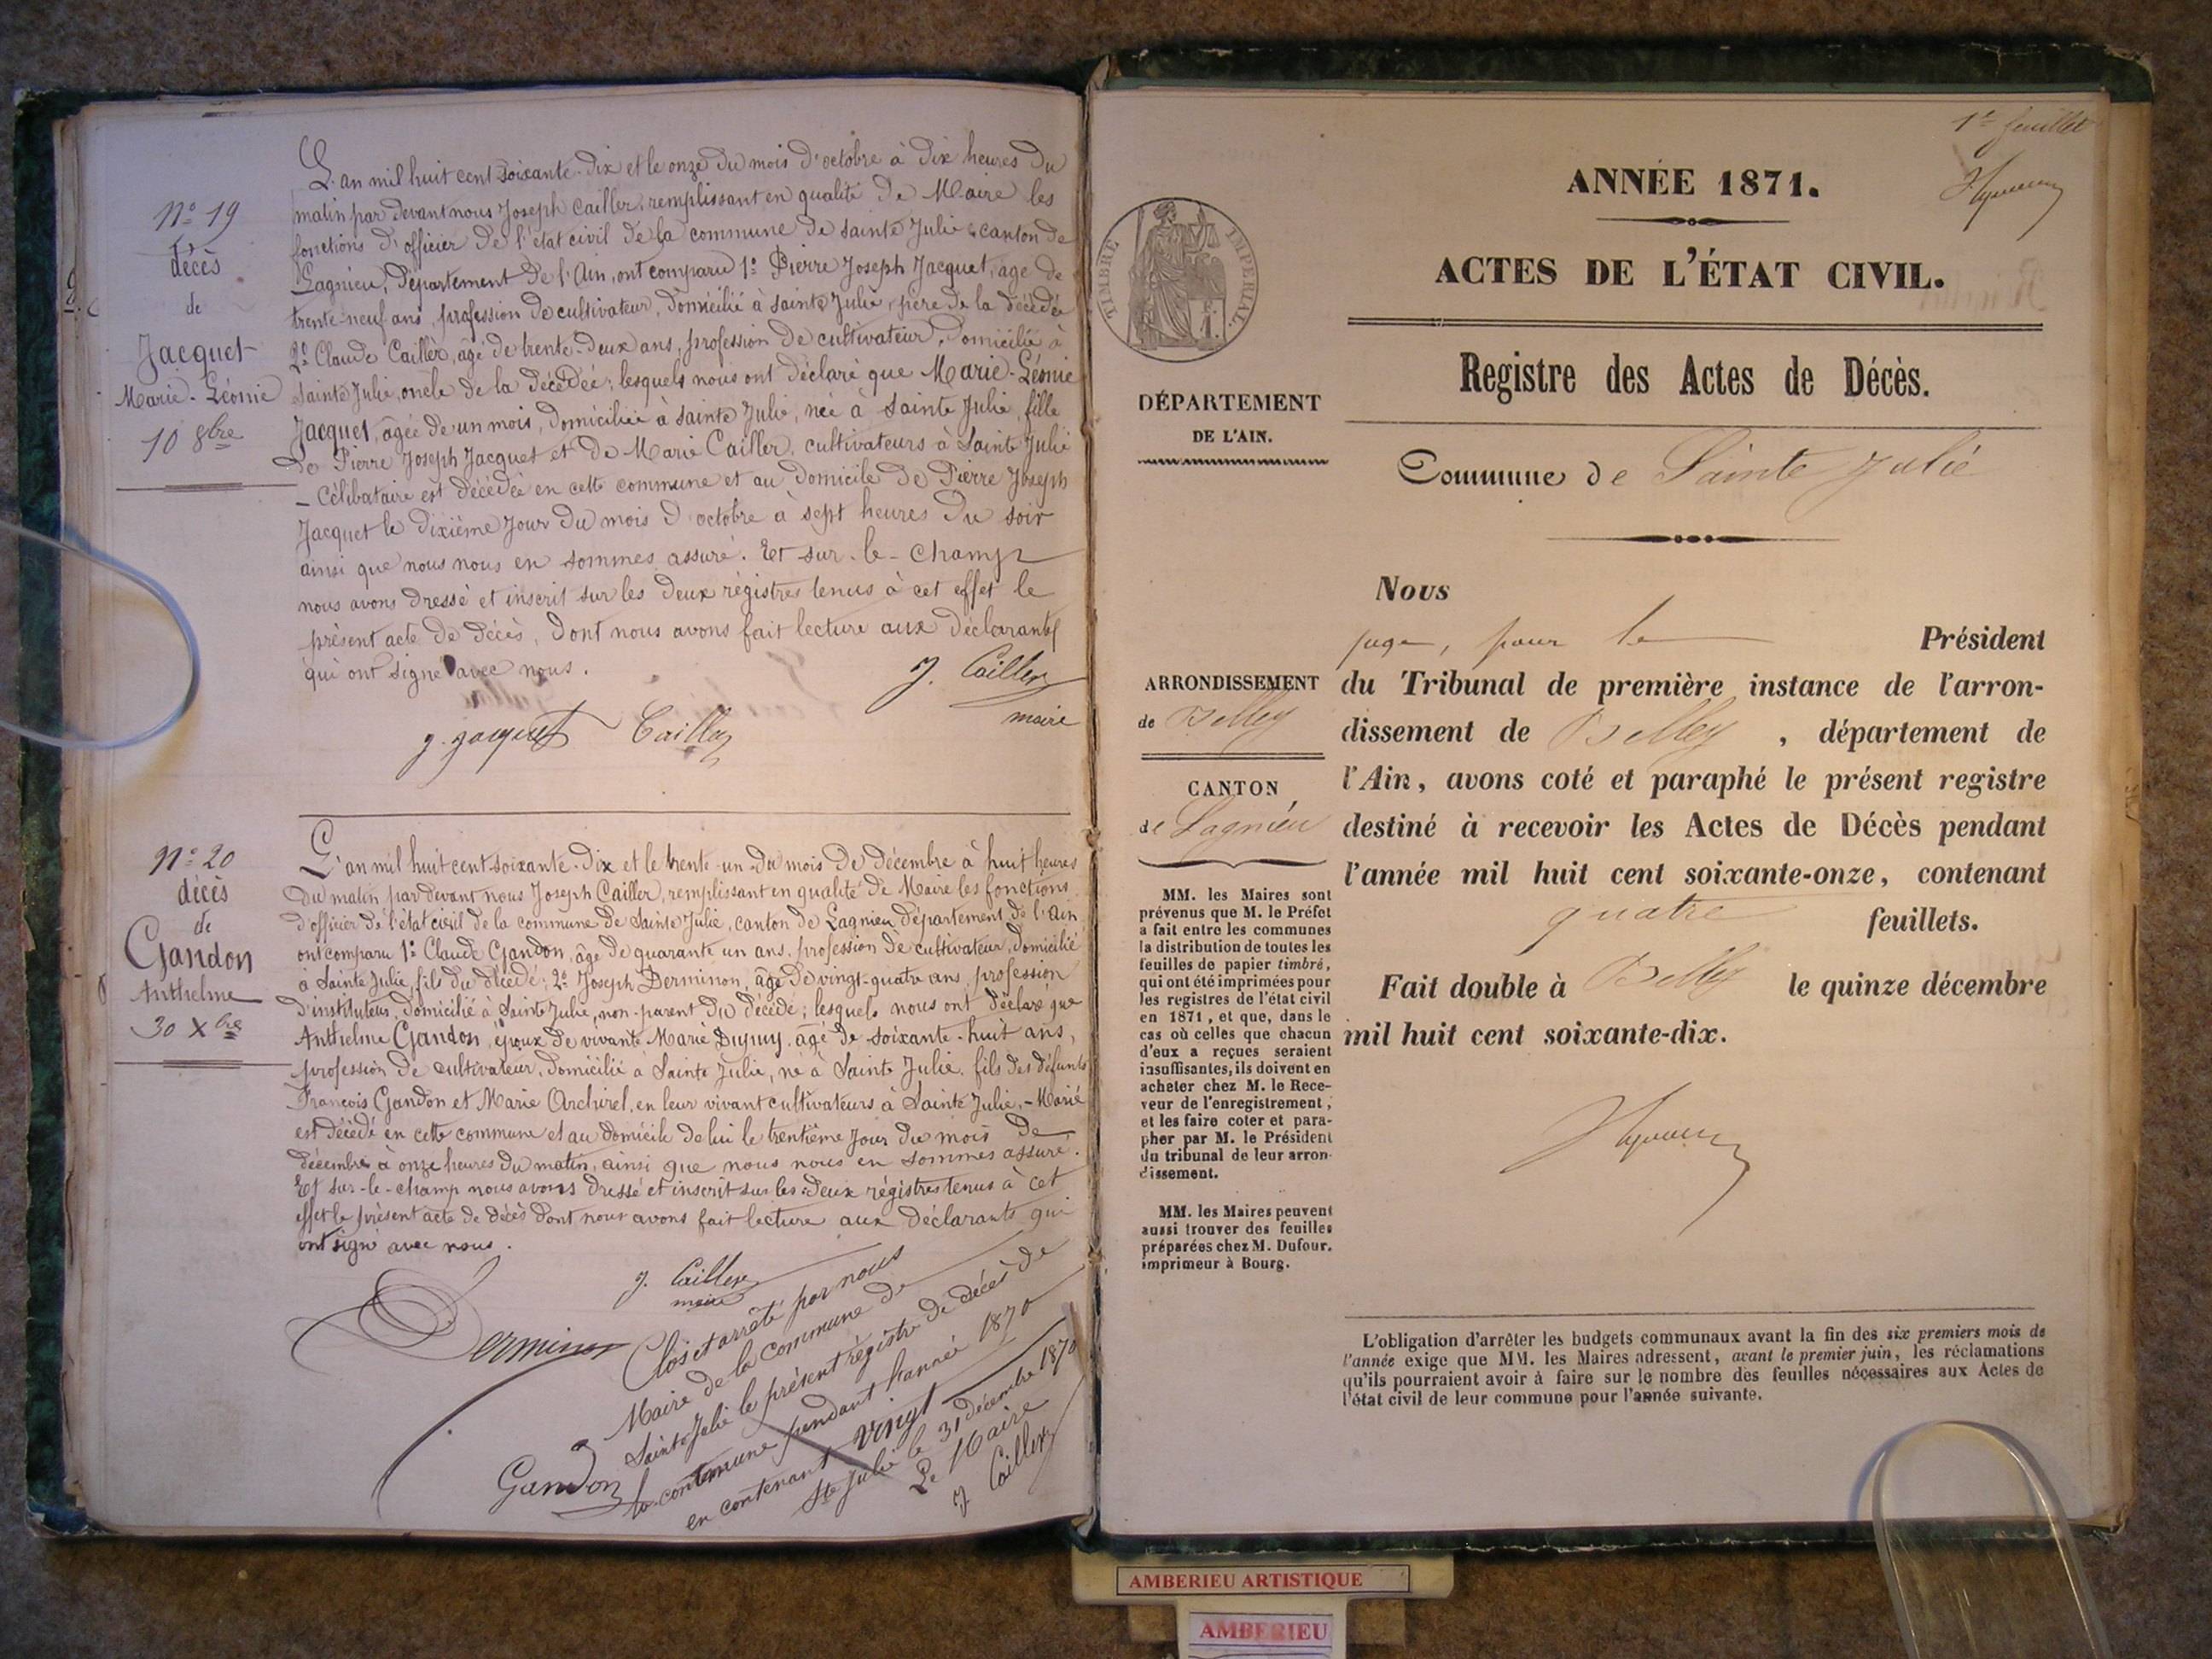 N° 19
décès
de
Jacquet
Marie-Léonie
10 8bre
L'an mil huit cent soixante-dix et le onze du mois d'octobre à dix heures du
matin par devant nous Joseph Cailler, remplissant en qualité de Maire les
fonctions d'officier de l'état civil de la commune de Sainte Julie canton de
Lagnieu, Département de l'Ain, ont comparu 1° Pierre Joseph Jacquet, âgé de
trente-neuf ans, profession de cultivateur, domicilié à Sainte Julie, père de la décédée
2° Claude Cailler, âgé de trente-deux ans, profession de cultivateur, domicilié à
Sainte Julie, oncle de la décédée; lesquels nous ont déclaré que Marie-Léonie
Jacquet, âgée de un mois, domiciliée à Sainte Julie, née à Sainte Julie, fille
de Pierre Joseph Jacquet et de Marie Cailler, cultivateurs à Sainte Julie
- Célibataire est décédée en cette commune et au domicile de Pierre Joseph
Jacquet le dixième jour du mois d'octobre à sept heures du soir
ainsi que nous nous en sommes assuré. Et sur-le-champ
nous avons dressé et inscrit sur les deux régistres tenus à cet effet le
présent acte de décès, dont nous avons fait lecture aux déclarants
qui ont signé avec nous.
J. Cailler
maire
J. Jacquet Cailler
N° 20
décès
de
Gandon
Anthelme
30 Xbre
L'an mil huit cent soixante-dix et le trente-un du mois de décembre à huit heures
du matin par devant nous Joseph Cailler, remplissant en qualité de Maire les fonctions
d'officier de l'état civil de la commune de Sainte Julie, canton de Lagnieu Département de l'Ain
ont comparu 1° Claude Gandon, âgé de quarante un ans, profession de cultivateur, domicilié
à Sainte Julie, fils du décédé; 2° Joseph Derminon, âgé de vingt-quatre ans, profession
d'instituteur, domicilié à Sainte Julie, non-parent du décédé; lesquels nous ont déclaré que
Anthelme Gandon, époux de vivante Marie Dupuy, âgé de soixante-huit ans,
profession de cultivateur, domicilié à Sainte Julie, né à Sainte Julie, fils des défunts
François Gandon et Marie Archirel, en leur vivant cultivateurs à Sainte Julie, - Marié
est décédé en cette commune et au domicile de lui le trentième jour du mois de
décembre à onze heures du matin, ainsi que nous nous en sommes assuré.
Et sur-le-champ nous avons dressé et inscrit sur les deux régistres tenus à cet
effet le présent acte de décès dont nous avons fait lecture aux déclarants qui
ont signé avec nous.
J. Cailler
maire
Derminon
Gandon
Clos et arrêté par nous
Maire de la commune de
Sainte Julie le présent régistre de décès de
la commune pendant l'année 1870
en contenant vingt
Ste Julie le 31 décembre 1870
Le Maire
J Cailler
1er feuillet
ANNÉE 1871.
ACTES DE L'ÉTAT CIVIL.
Registre des Actes de Décès.
Commune de Sainte Julie
TIMBRE IMPERIAL.
DÉPARTEMENT
DE L'AIN.
ARRONDISSEMENT
de Belley
CANTON
de Lagnieu
MM. les Maires sont
prévenus que M. le Préfet
a fait entre les communes
la distribution de toutes les
feuilles de papier timbré,
qui ont été imprimées pour
les registres de l'état civil
en 1871, et que, dans le
cas où celles que chacun
d'eux a reçues seraient
insuffisantes, ils doivent en
acheter chez M. le Rece-
veur de l'enregistrement,
et les faire coter et para-
pher par M. le Président
du tribunal de leur arron-
dissement.
MM. les Maires peuvent
aussi trouver des feuilles
préparées chez M. Dufour,
imprimeur à Bourg.
Nous
juge, pour le Président
du Tribunal de première instance de l'arron-
dissement de Belley, département de
l'Ain, avons coté et paraphé le présent registre
destiné à recevoir les Actes de Décès pendant
l'année mil huit cent soixante-onze, contenant
quatre feuillets.
Fait double à Belley le quinze décembre
mil huit cent soixante-dix.
L'obligation d'arrêter les budgets communaux avant la fin des six premiers mois de
l'année exige que MM. les Maires adressent, avant le premier juin, les réclamations
qu'ils pourraient avoir à faire sur le nombre des feuilles nécessaires aux Actes de
l'état civil de leur commune pour l'année suivante.
AMBERIEU ARTISTIQUE
AMBERIEU